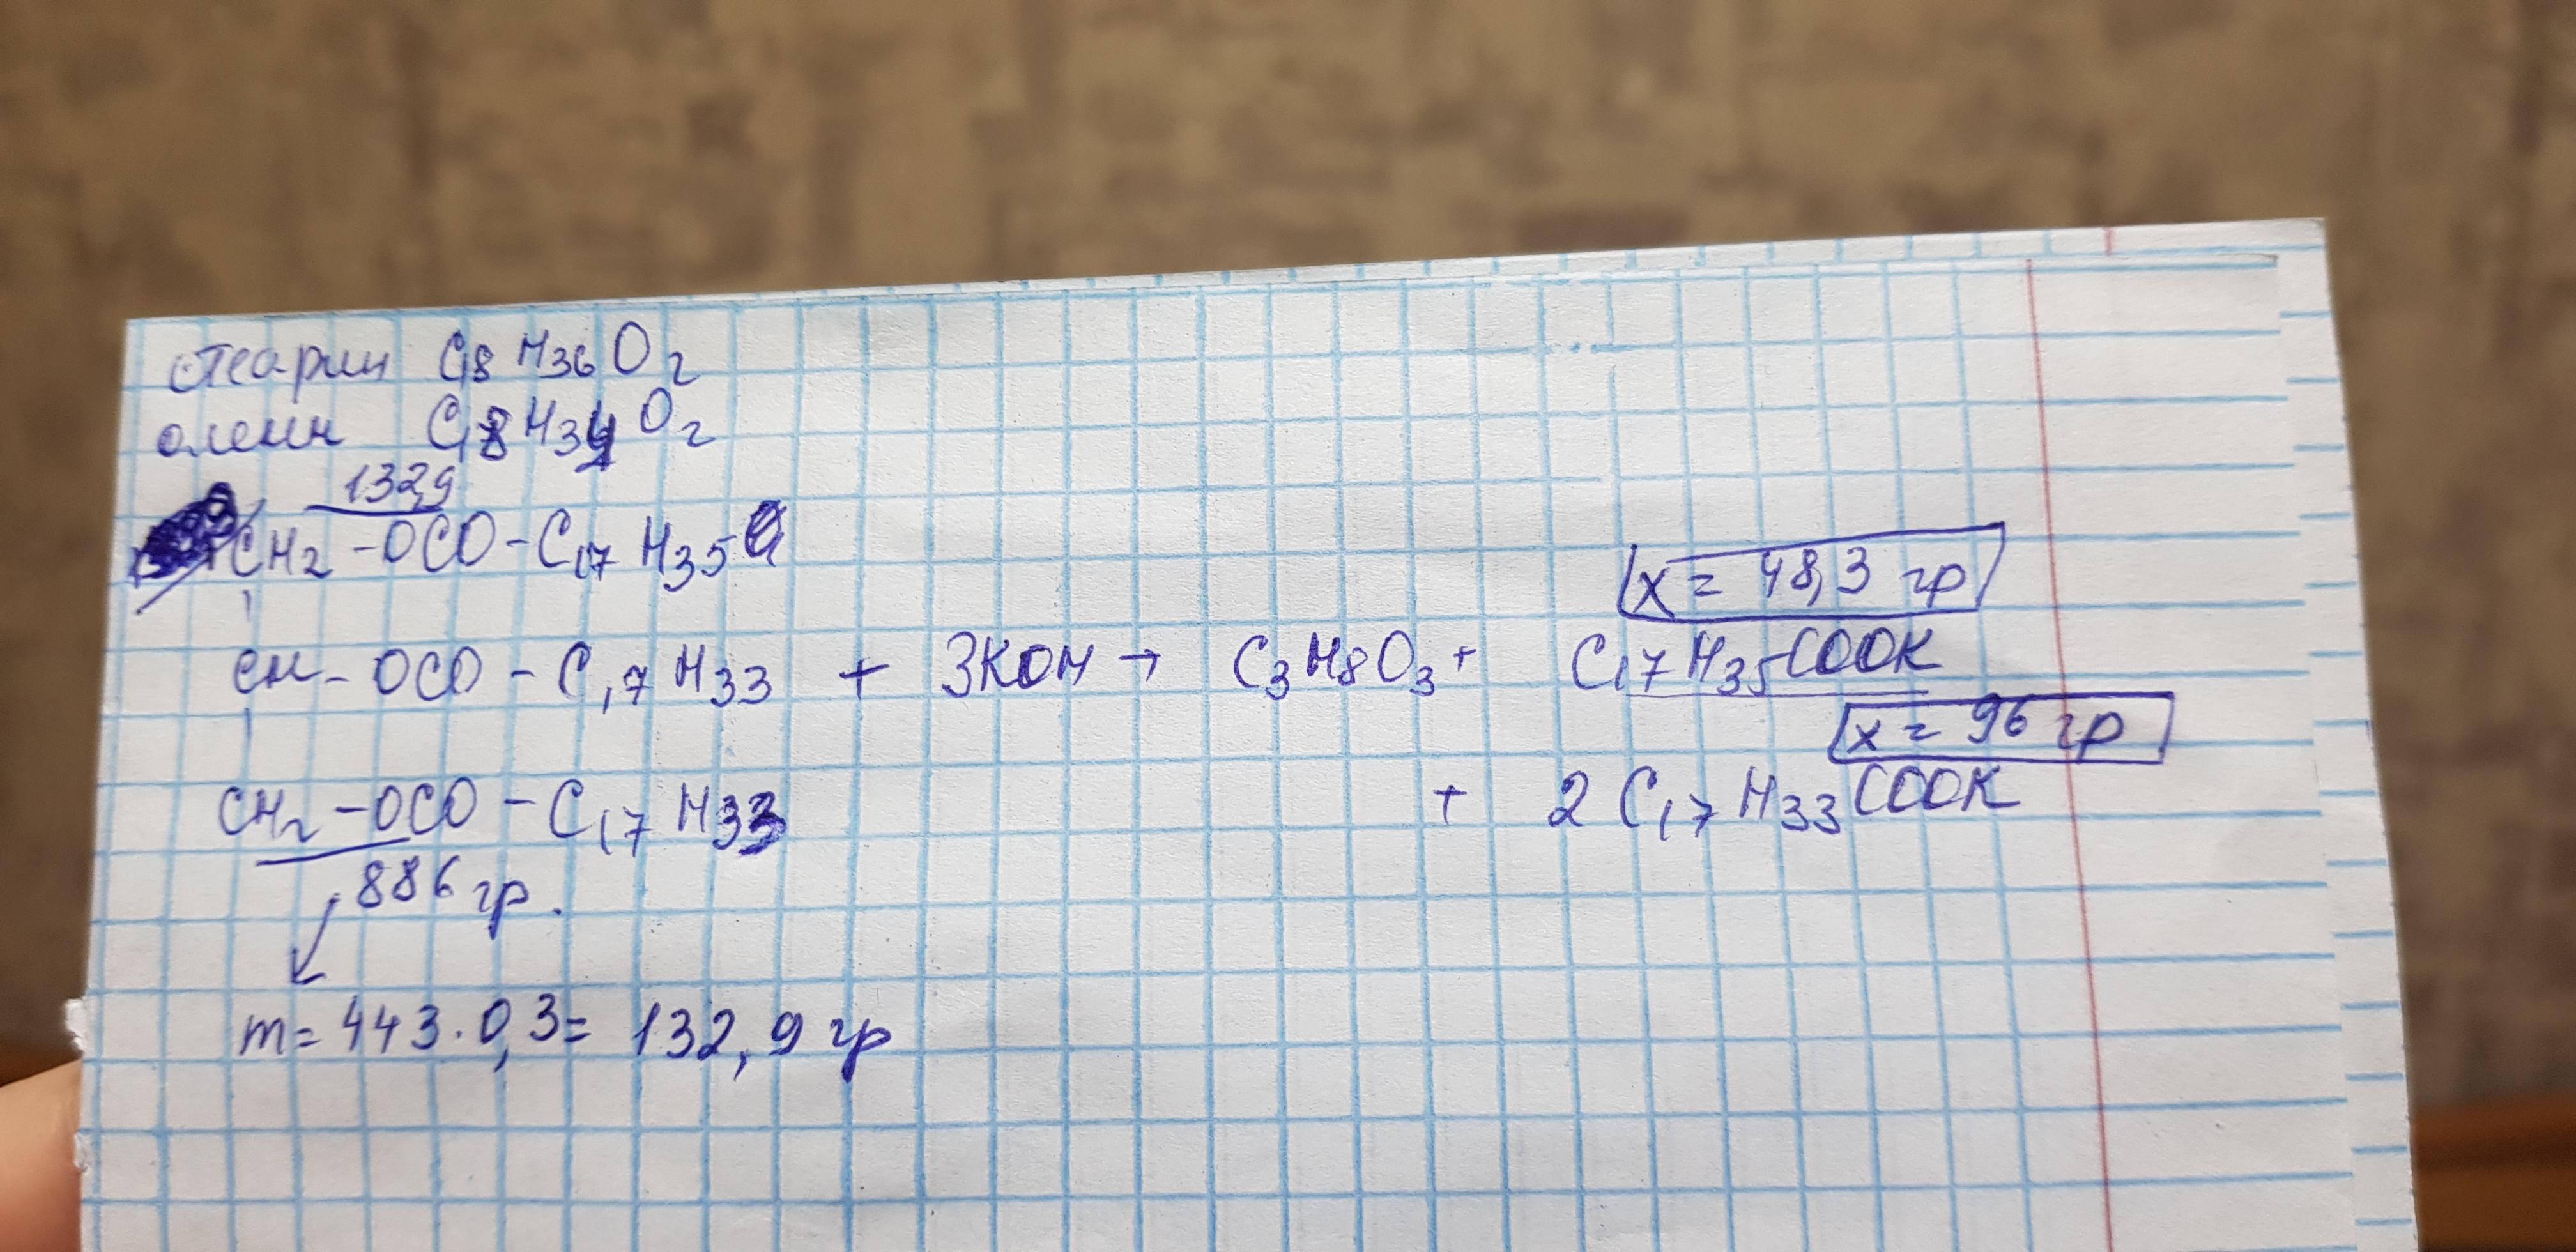 стеарин C18H36O2
олеин C18H34O2
132,9
CH2 -OCO-C17H35
x = 48,3 гр
CH- OCO - C17H33 + 3KOH → C3H8O3 + C17H35COOK
x = 96 гр
CH2 -OCO - C17H33 + 2 C17H33COOK
886 гр.
m= 443 · 0,3= 132,9 гр